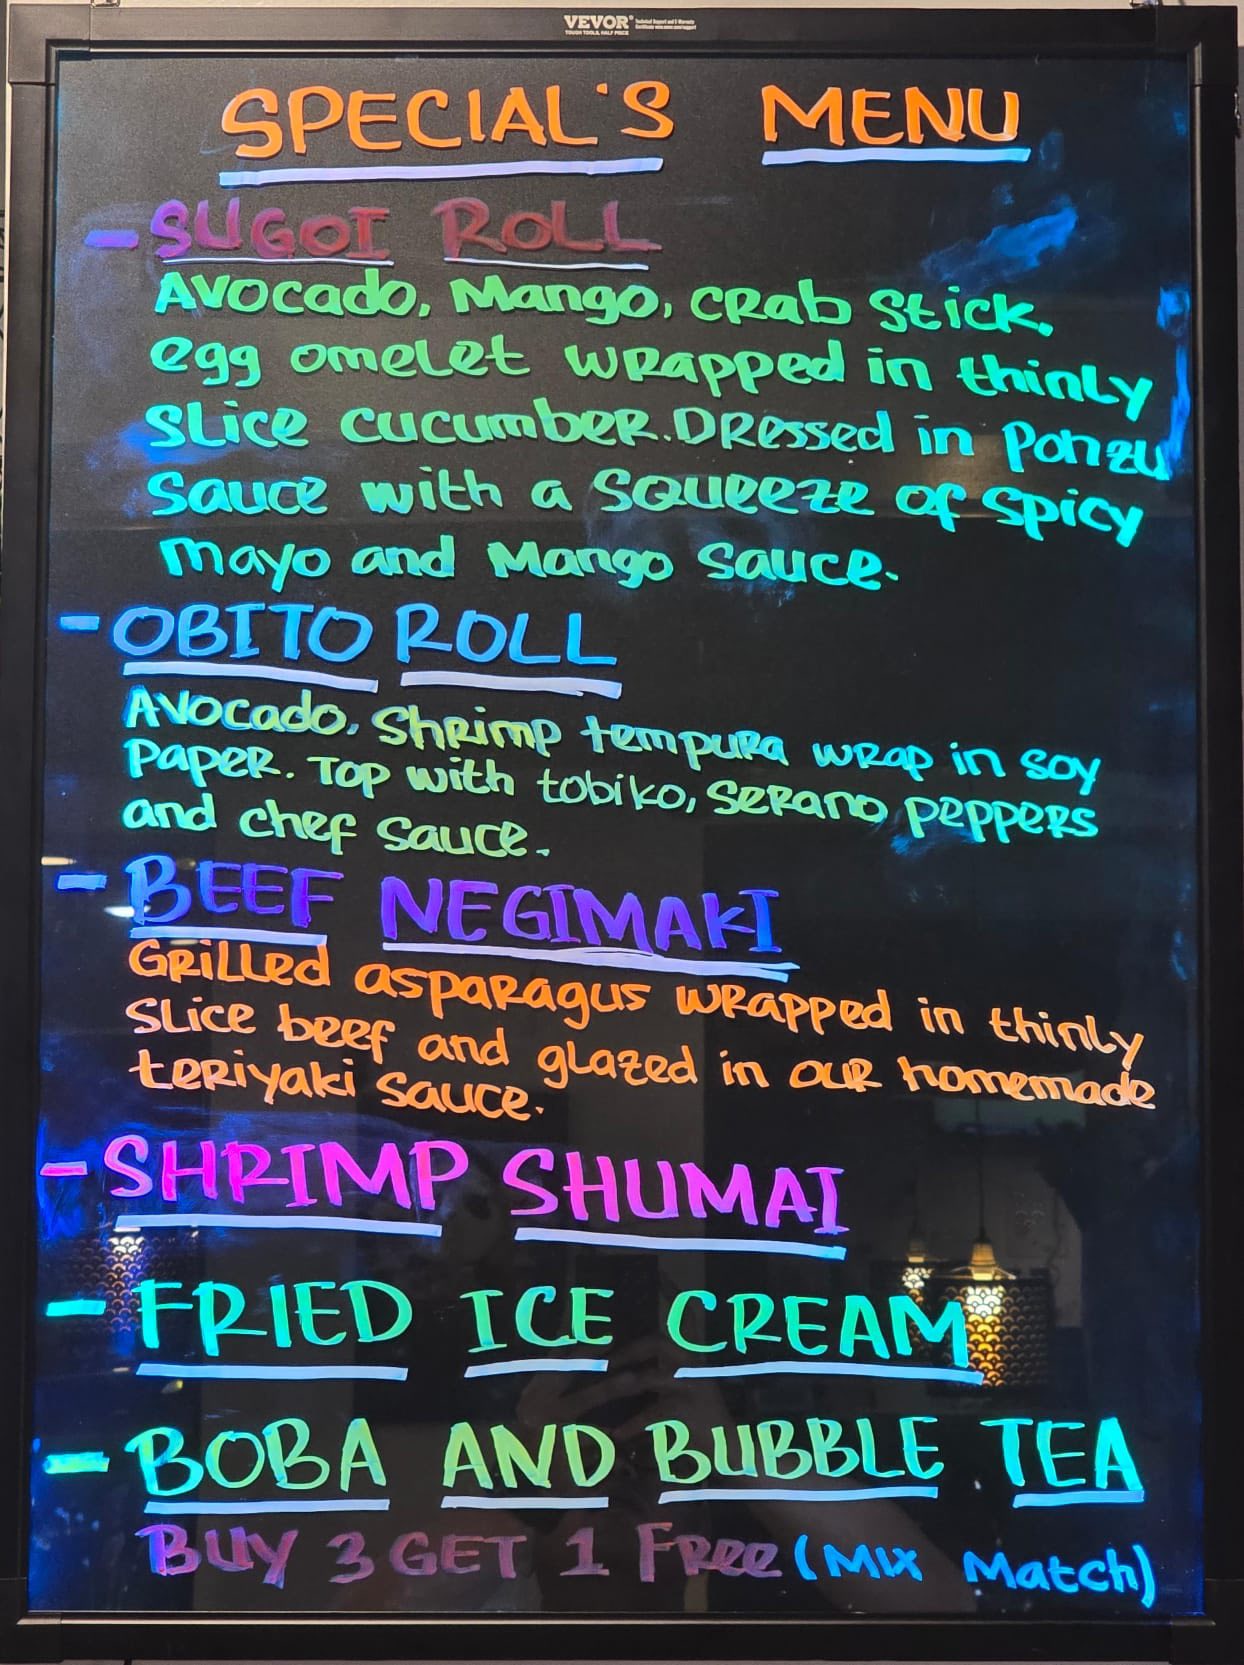 VEVOR®
TOUGH TOOLS, HALF PRICE
Technical Support and E-Warranty
Certificate www.vevor.com/support
SPECIAL'S MENU
- SUGOI ROLL
Avocado, Mango, Crab Stick,
egg omelet wrapped in thinly
Slice cucumber. Dressed in Ponzu
Sauce with a Squeeze of Spicy
mayo and Mango Sauce.
- OBITO ROLL
Avocado, Shrimp tempura wrap in soy
Paper. Top with tobiko, Serano peppers
and chef Sauce.
- BEEF NEGIMAKI
Grilled asparagus wrapped in thinly
Slice beef and glazed in our homemade
teriyaki Sauce.
- SHRIMP SHUMAI
- FRIED ICE CREAM
- BOBA AND BUBBLE TEA
BUY 3 GET 1 Free (Mix Match)